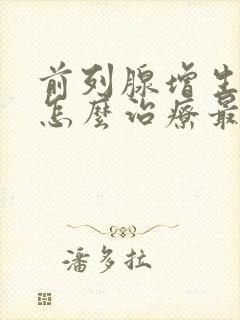 前列腺增生
怎麼治療最
潘多拉